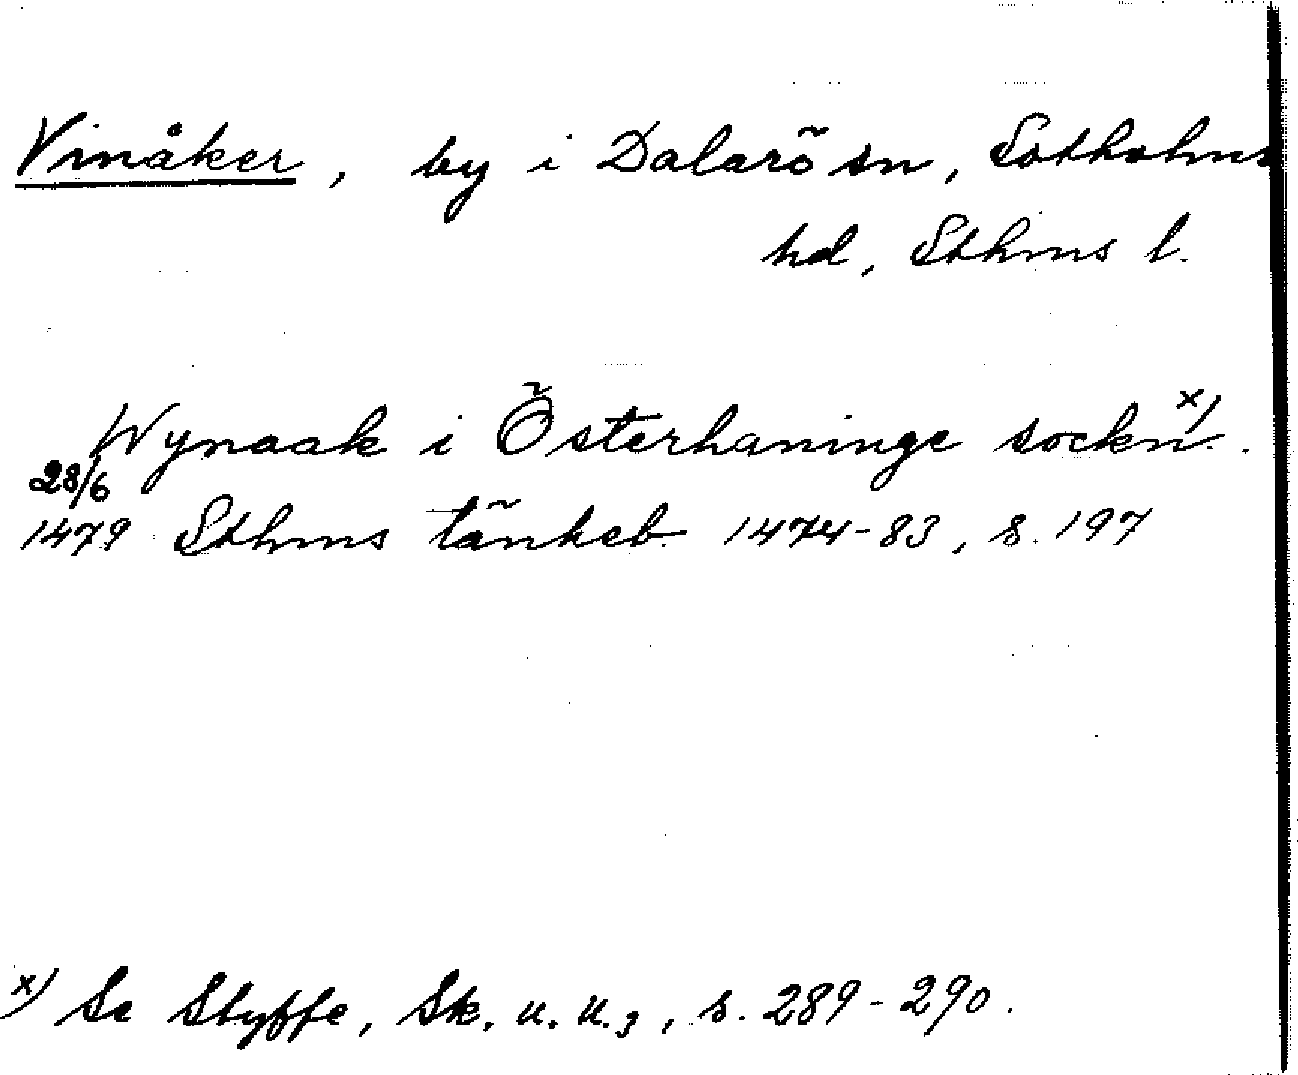 Vinåker, by i Dalarö sn, Sotholms
hd, Sthms l.
Wynaak i Österhaninge sockn x).
28/6
1479 Sthms tänkeb. 1474-83, s. 197
x) Se Styffe, Sk. u. u.3, s. 289-290.